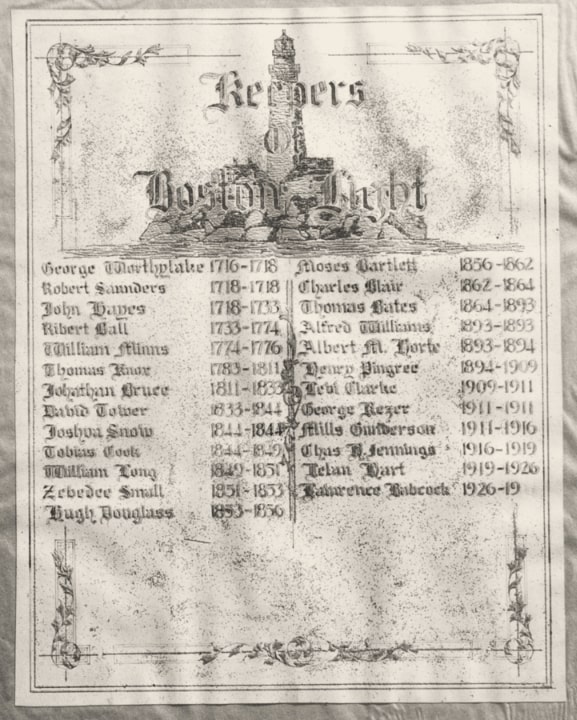 Keepers
Of
Boston Light
George Worthylake 1716-1718
Robert Saunders 1718-1718
John Hayes 1718-1733
Robert Ball 1733-1774
William Minns 1774-1776
Thomas Knox 1783-1811
Jonathan Bruce 1811-1833
David Tower 1833-1844
Joshua Snow 1844-1844
Tobias Cook 1844-1849
William Long 1849-1851
Zebedee Small 1851-1853
Hugh Douglass 1853-1856
Moses Bartlett 1856-1862
Charles Blair 1862-1864
Thomas Bates 1864-1893
Alfred Williams 1893-1893
Albert M. Horte 1893-1894
Henry Pingree 1894-1909
Levi Clarke 1909-1911
George Kezer 1911-1911
Mills Gunderson 1911-1916
Chas H. Jennings 1916-1919
Lelan Hart 1919-1926
Lawrence Babcock 1926-19